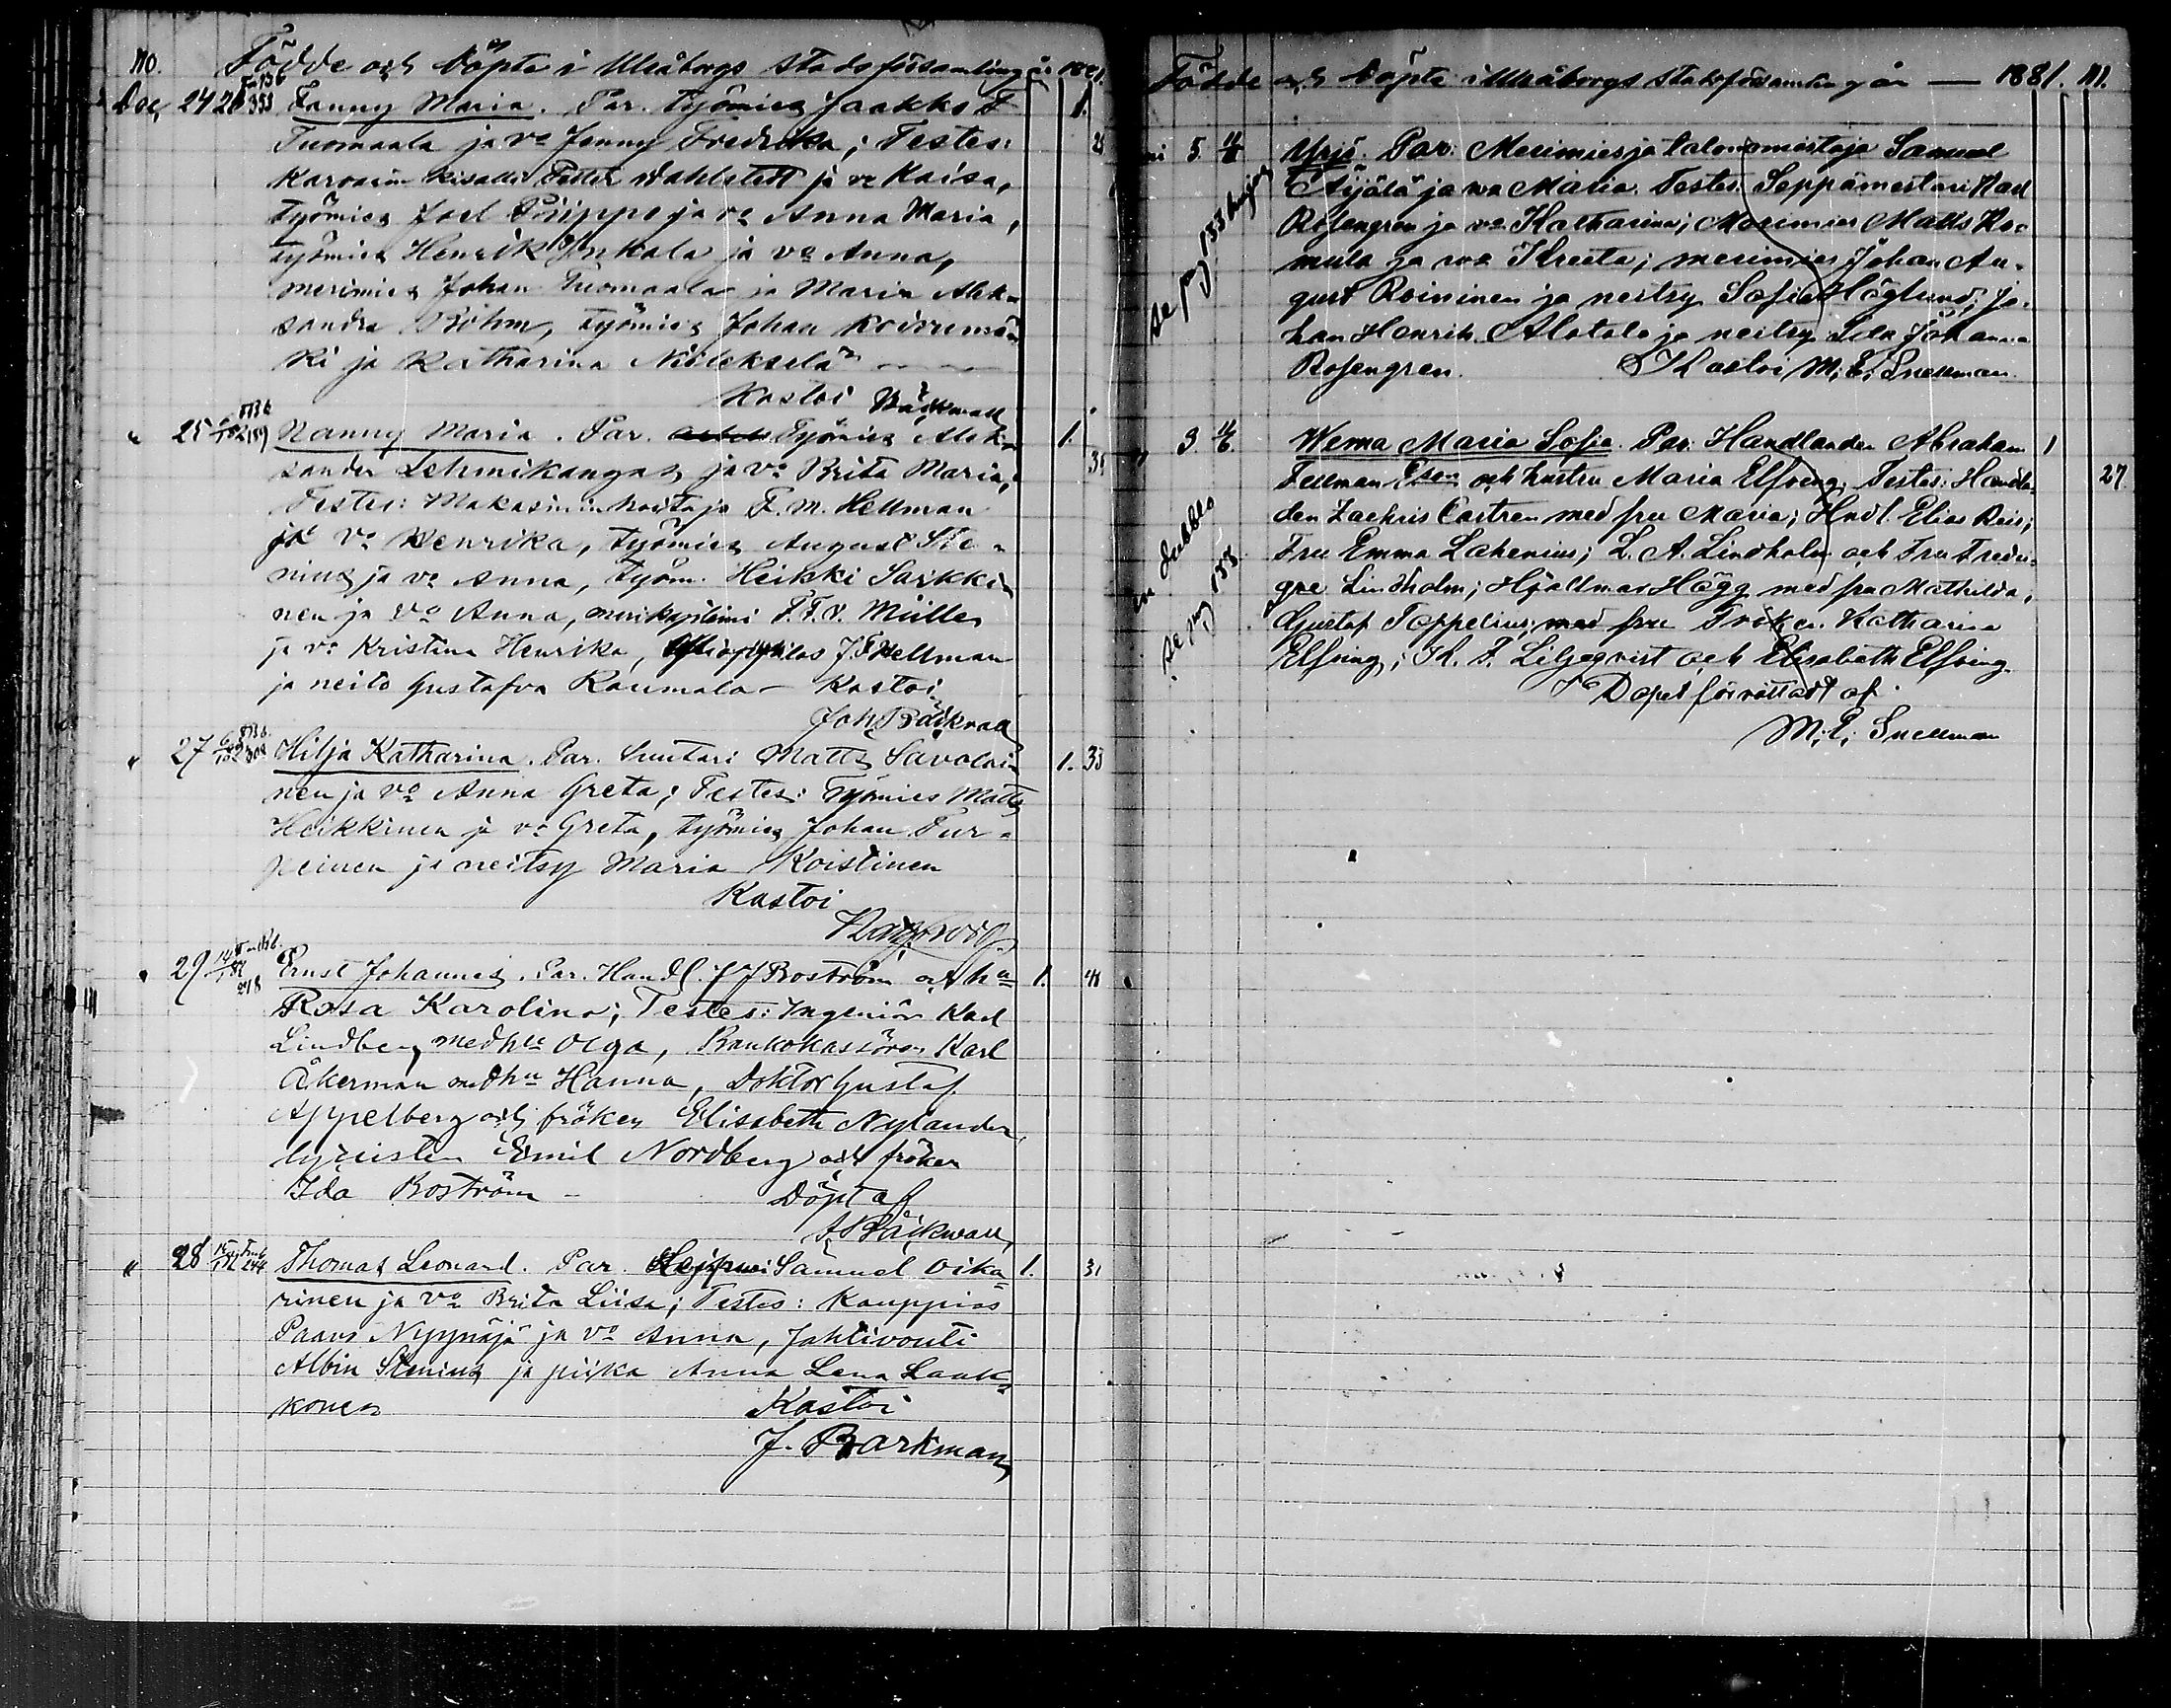 110. Födde och Döpte i Uleåborgs stadsförsamling år 1881.
Dec. 24 28 353 Fanny Maria. Par. Työmies Jaakko F 1.
Tuomaala ja vo Jenny Fredrika; Testes:
Karvarin kisälli Petter Wahlstedt ja vo Kaisa,
Työmies Joel ja vo Anna Maria,
työmies Henrik Inkala ja vo Anna,
merimies Johan Tuomaala ja Maria Alek-
sandra Böhm, työmies Johan
ki ja Katharina
Kastoi Bäckwall
" 25 Nanny Maria. Par. Työmies Alek- 1.
sander Lehmikangas ja vo Brita Maria;
Testes: Makasiinin hoitaja F. M. Hellman
ja vo Henrika, työmies August Ste-
nius ja vo Anna, työm. Heikki Sarkki-
nen ja vo Anna, merikapteini F. F. V. Müller
ja vo Kristina Henrika, J. F. Hellman
ja neito Gustafva Raumala - Kastoi
Joh. Bäckwall
" 27 Hilja Katharina. Par. Suutari Matts Savolai- 1. 33
nen ja vo Anna Greta; Testes: Työmies Matts
Heikkinen ja vo Greta, työmies Johan Tur-
peinen ja neitsy Maria Koistinen
Kastoi
" 29 Ernst Johannes. Par. Handl. J J Boström och hu 1.
Rosa Karolina; Testes: Ingeniör Karl
Lindberg med hu Olga, Bankokassören Karl
Åkerman med hu Hanna, Doktor Gustaf
Appelberg och fröken Elisabeth Nylander,
lyceisten Emil Nordberg och fröken
Ida Boström - Döpt af
J. Bäckwall
" 28 244 Thomas Leonard. Par. Samuel Oika- 1. 31
rinen ja vo Brita Liisa; Testes: Kauppias
Paavo Nyynäjä ja vo Anna, Jahtivouti
Albin Stenius ja piika Anna Lena Laak-
konen Kastoi
J. Barkman
Födde och Döpte i Uleåborgs stadsförsamling år — 1881. 111.
5. Yrjö. Par: Merimies ja talonomistaja Samuel
Äijälä ja wa Maria. Testes: Seppämestari Karl
Rosengren ja va Katharina; Merimies Matts Ro-
mula ja wa Kreeta; merimies Johan Au-
gust Roininen ja neitsy Sofia Höglund; Jo-
han Henrik Alatalo ja neitsy Johanna
Rosengren. Kastoi M. E. Snellman.
Se pag 133
3. Werna Maria Sofie. Par. Handlanden Abraham 1
Fellman och hustru Maria Elfving. Testes: Handla- 27
den Zachris Castren med fru Maria; Handl. Elias Reis;
Fru Emma Lahenius; L. A. Lindholm och Fru Frede-
gue Lindholm; Hjallmar Hägg med fru Mathilda,
Gustaf Toppelius, med fru Fröken Katharina
Elfving; Liljeqvist och Elisabeth Elfving.
Dopet förrättadt af
M. E. Snellman
Se pag 133.